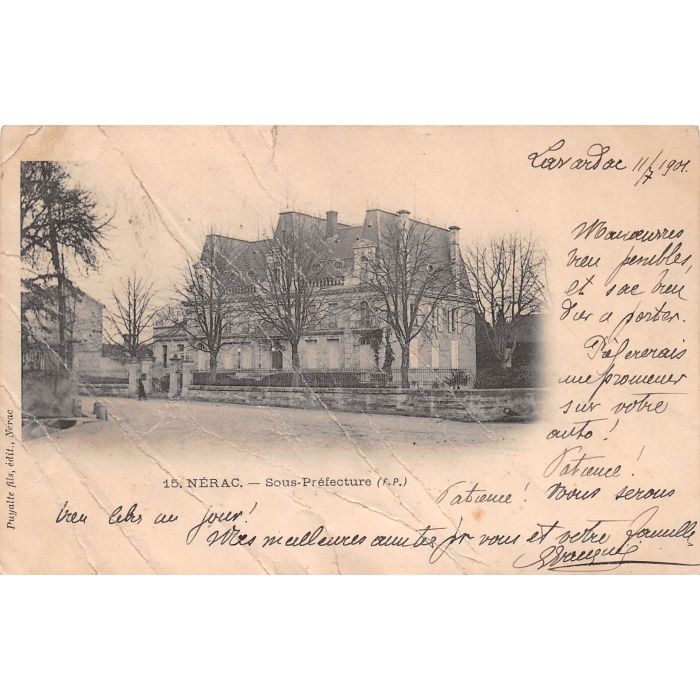 Lavardac 11/7 1901.
Manoeuvres
bien pénibles
et sac bien
dur à porter.
Préfèrerais
me promener
sur votre
auto!
Patience!
Patience! Nous serons
bien libres un jour!
Mes meilleures amitiés pr vous et votre famille
15. NÉRAC. — Sous-Préfecture (F.P.)
Puyalte fils, édit., Nérac